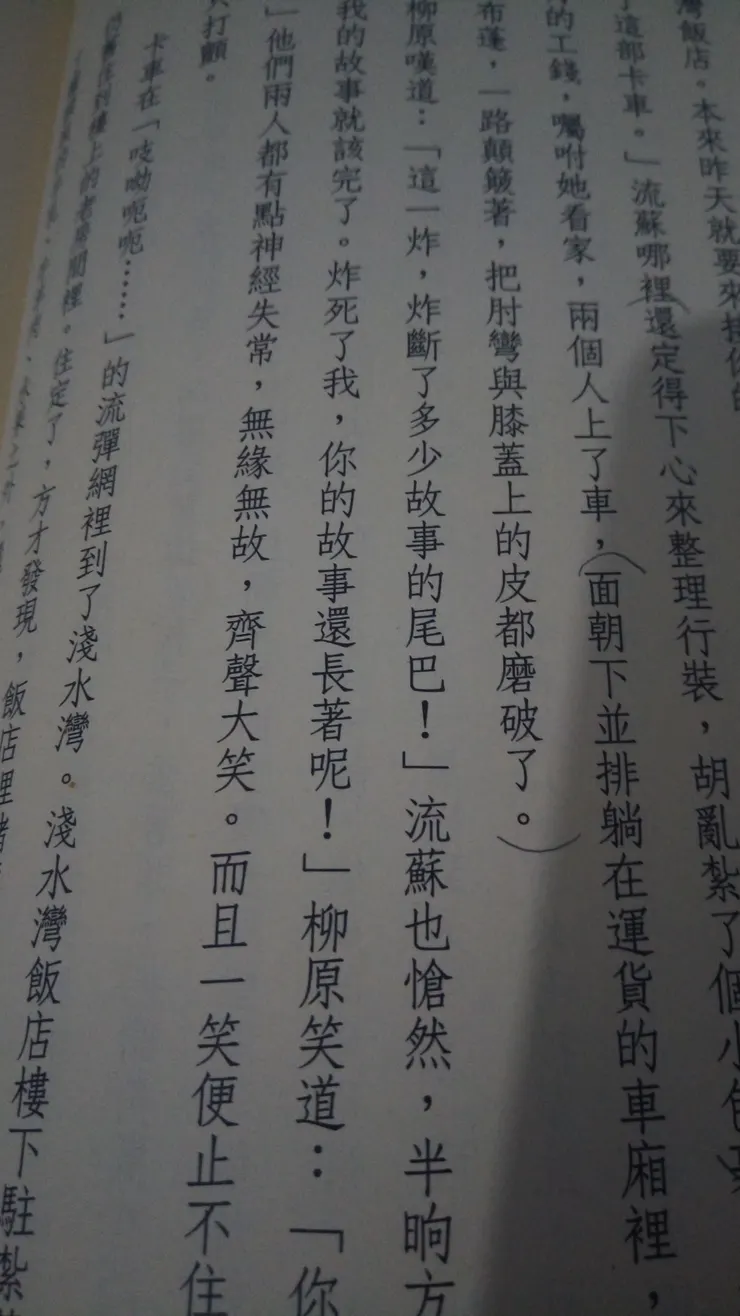 灣飯店。本來昨天就要來接你的
了這部卡車。」流蘇哪裡還定得下心來整理行裝，胡亂紮了個小包裹
的工錢，囑咐她看家，兩個人上了車，面朝下並排躺在運貨的車廂裡，
布蓬，一路顛簸著，把肘彎與膝蓋上的皮都磨破了。
柳原嘆道：「這一炸，炸斷了多少故事的尾巴！」流蘇也愴然，半晌方
我的故事就該完了。炸死了我，你的故事還長著呢！」柳原笑道：「你
」他們兩人都有點神經失常，無緣無故，齊聲大笑。而且一笑便止不住
打顫。
卡車在「吱呦呃呃……」的流彈網裡到了淺水灣。淺水灣飯店樓下駐紮
樓上的老房間裡。住定了，方才發現，飯店裡